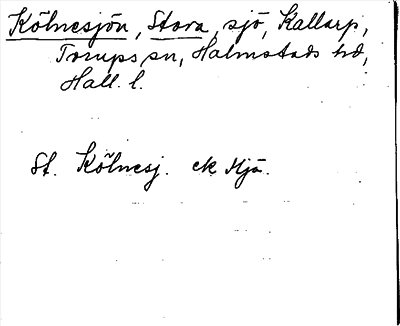 Kölnesjön, Stora, sjö, Kallarp,
Torups sn, Halmstads hd,
Hall. l.
St. Kölnesj. ek